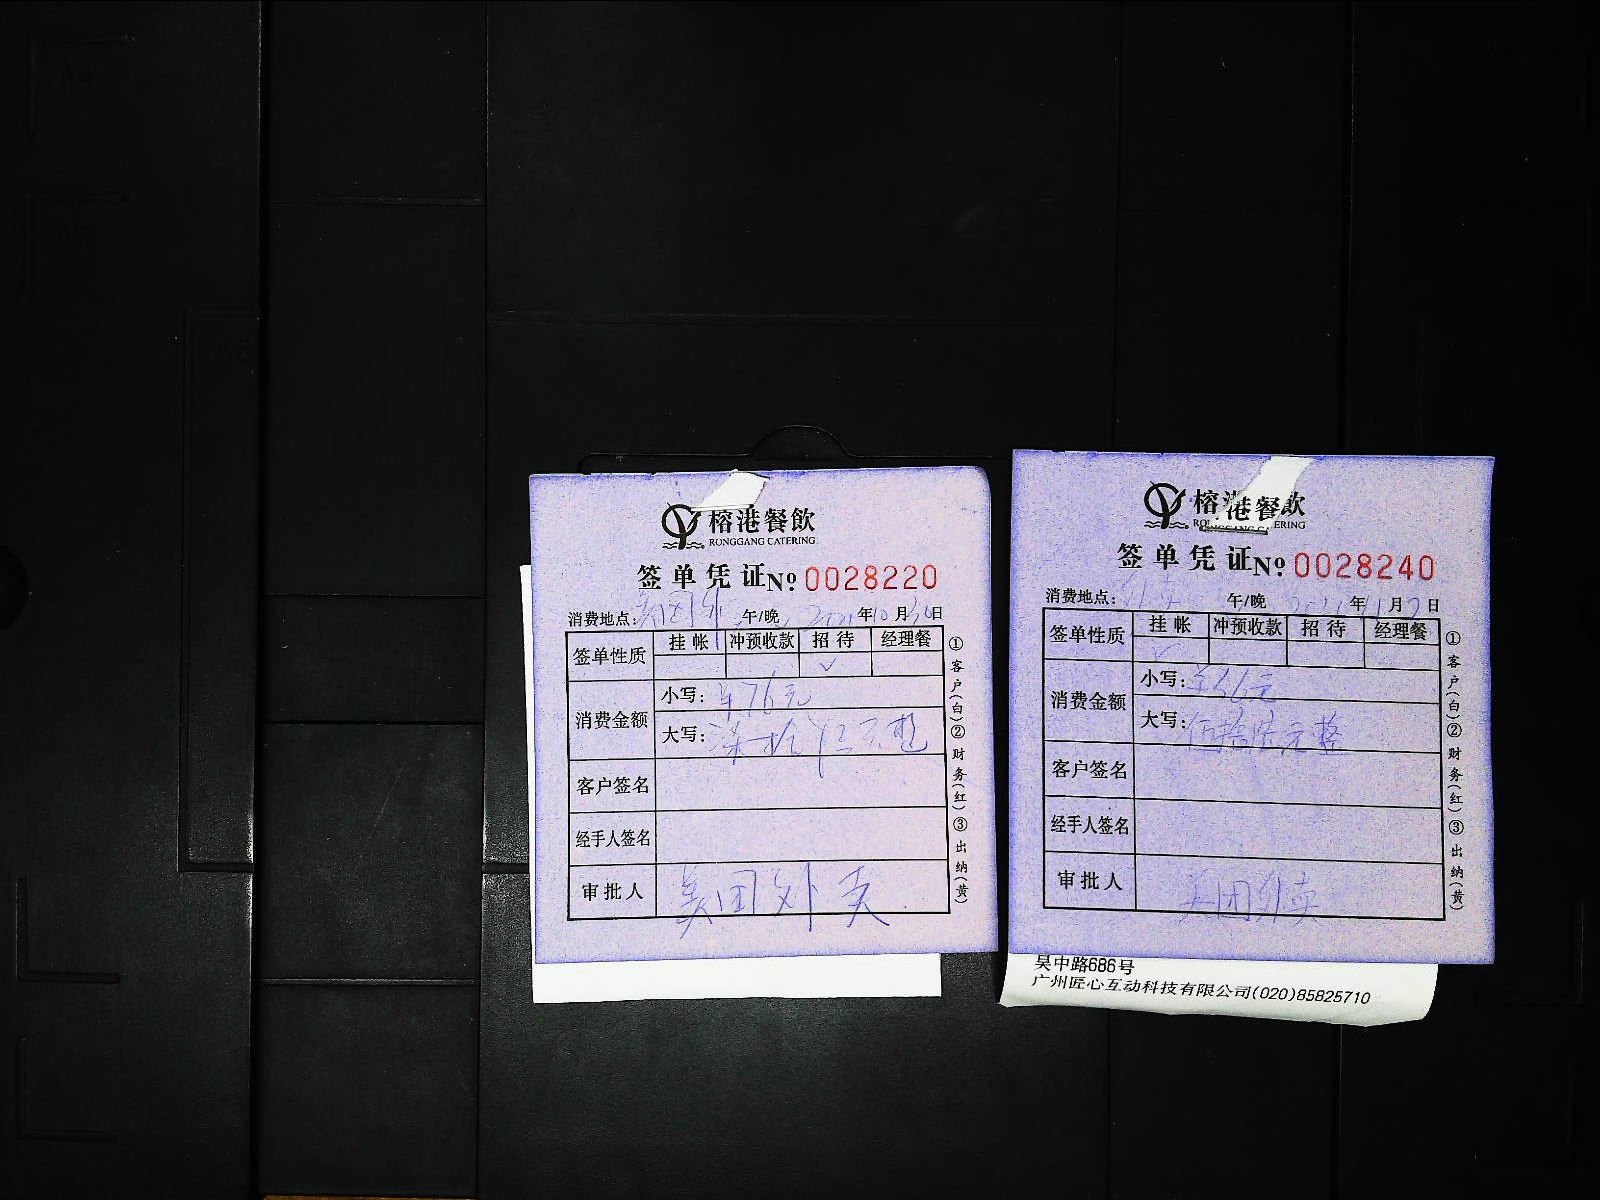 榕港餐飲
RONGGANG CATERING
签单凭证 № 0028220
消费地点: 美团外 午/晚 2021年10月30日
签单性质 挂帐 冲预收款 招待 经理餐
✓
消费金额 小写: ¥76元
大写: 柒拾 元整
客户签名
经手人签名
审批人 美团外卖
①客户(白)②财务(红)③出纳(黄)
榕港餐飲
CATERING
签单凭证 № 0028240
消费地点: 外卖 午/晚 年 月 日
签单性质 挂帐 冲预收款 招待 经理餐
✓
消费金额 小写: 元
大写: 伍拾 元整
客户签名
经手人签名
审批人 美团外卖
①客户(白)②财务(红)③出纳(黄)
吴中路686号
广州匠心互动科技有限公司(020)85825710